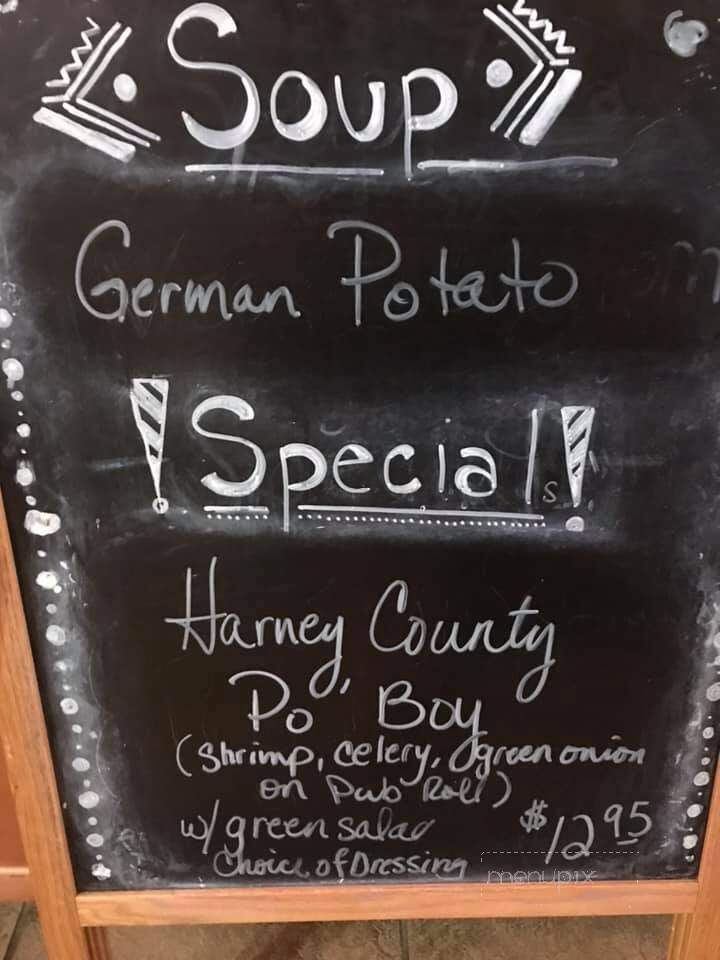 Soup
German Potato
! Specials !
Harney County
Po' Boy
(Shrimp, celery, green onion
on Pub Roll)
w/ green salad $12.95
Choice of Dressing
menupix